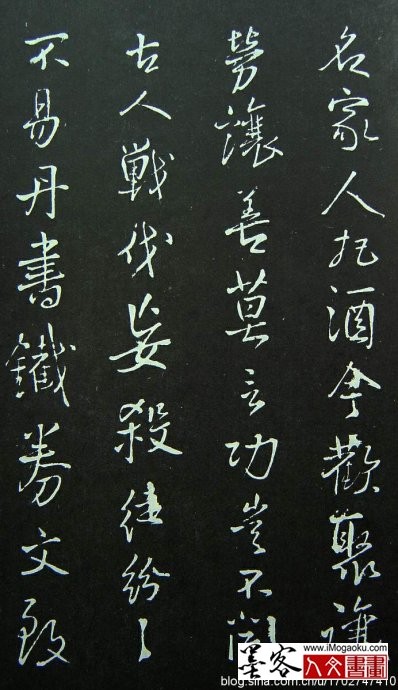 名家人把酒會歡聚讓
勞讓善莫言功豈不聞
古人戰伐妄殺徒紛々
不易丹書鐵券文
墨客
www.iMogaoku.com
人文書畫
blog.sina.com.cn/u/1702747410